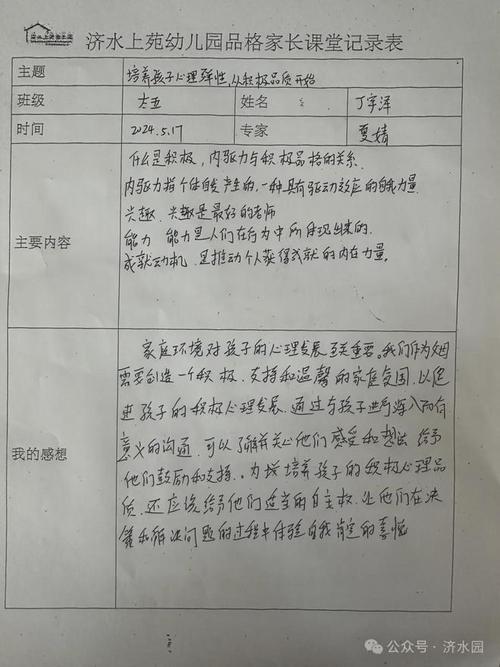 济水上苑幼儿园品格家长课堂记录表
主题 培养孩子心理弹性,从积极品质开始
班级 大五 姓名 丁宇泽
时间 2024.5.17 专家 夏婧
什么是积极,内驱力与积极品格的关系.
内驱力指个体自发产生的,一种具有驱动效应的自我力量
兴趣、兴趣是最好的老师
主要内容 能力 能力是人们在行为中所体现出来的.
成就动机,是推动个人获得成就的内在力量.
家庭环境对孩子的心理发展至关重要。我们作为父母
需要创造一个积极、支持和温馨的家庭氛围,以促
进孩子的积极心理发展,通过与孩子进行深入而有
意义的沟通,可以了解并关心他们感受和想法 给予
我的感想 他们鼓励和支持。为培养孩子的积极心理品
质,还应该给予他们适当的自主权,让他们在决
策和解决问题的过程中体验自我肯定的喜悦
公众号·济水园